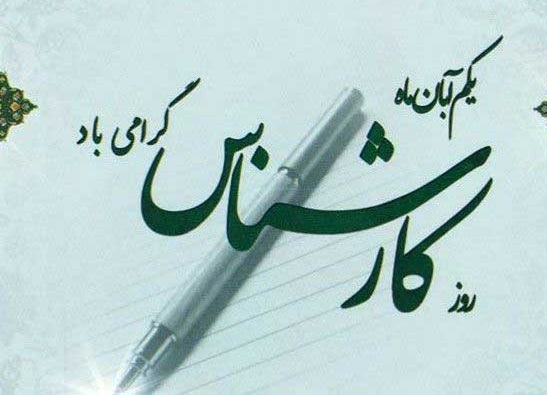 یکم آبان ماه
روز کارشناس گرامی باد